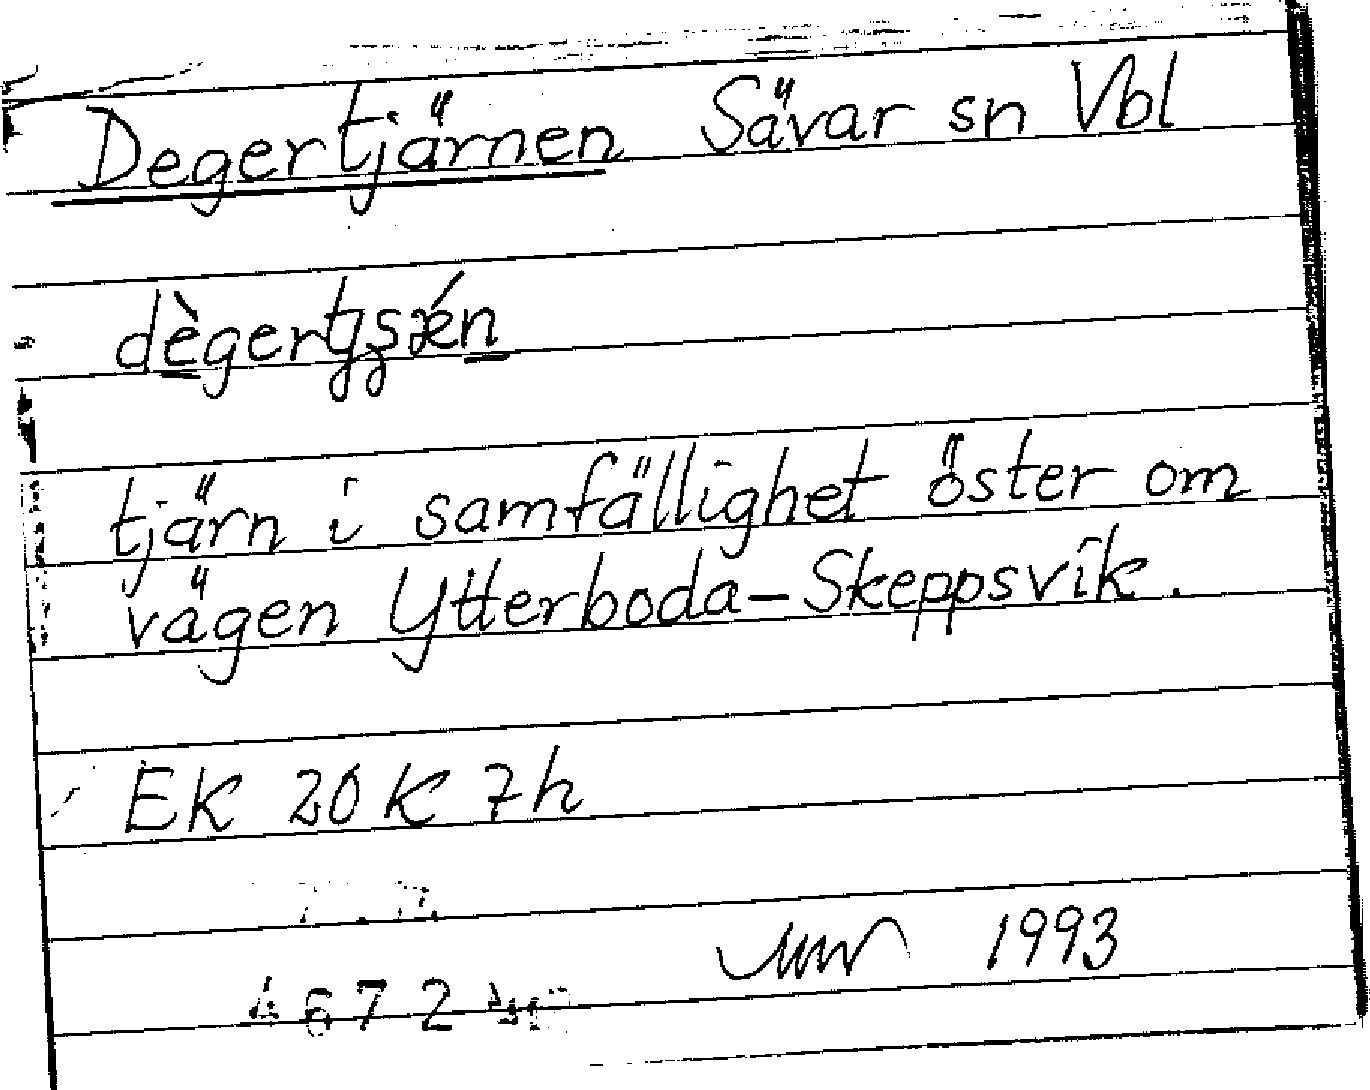 Degertjärnen Sävar sn Vbl
tjärn i samfällighet öster om
vägen Ytterboda-Skeppsvik.
EK 20 K 7h
1993
4672